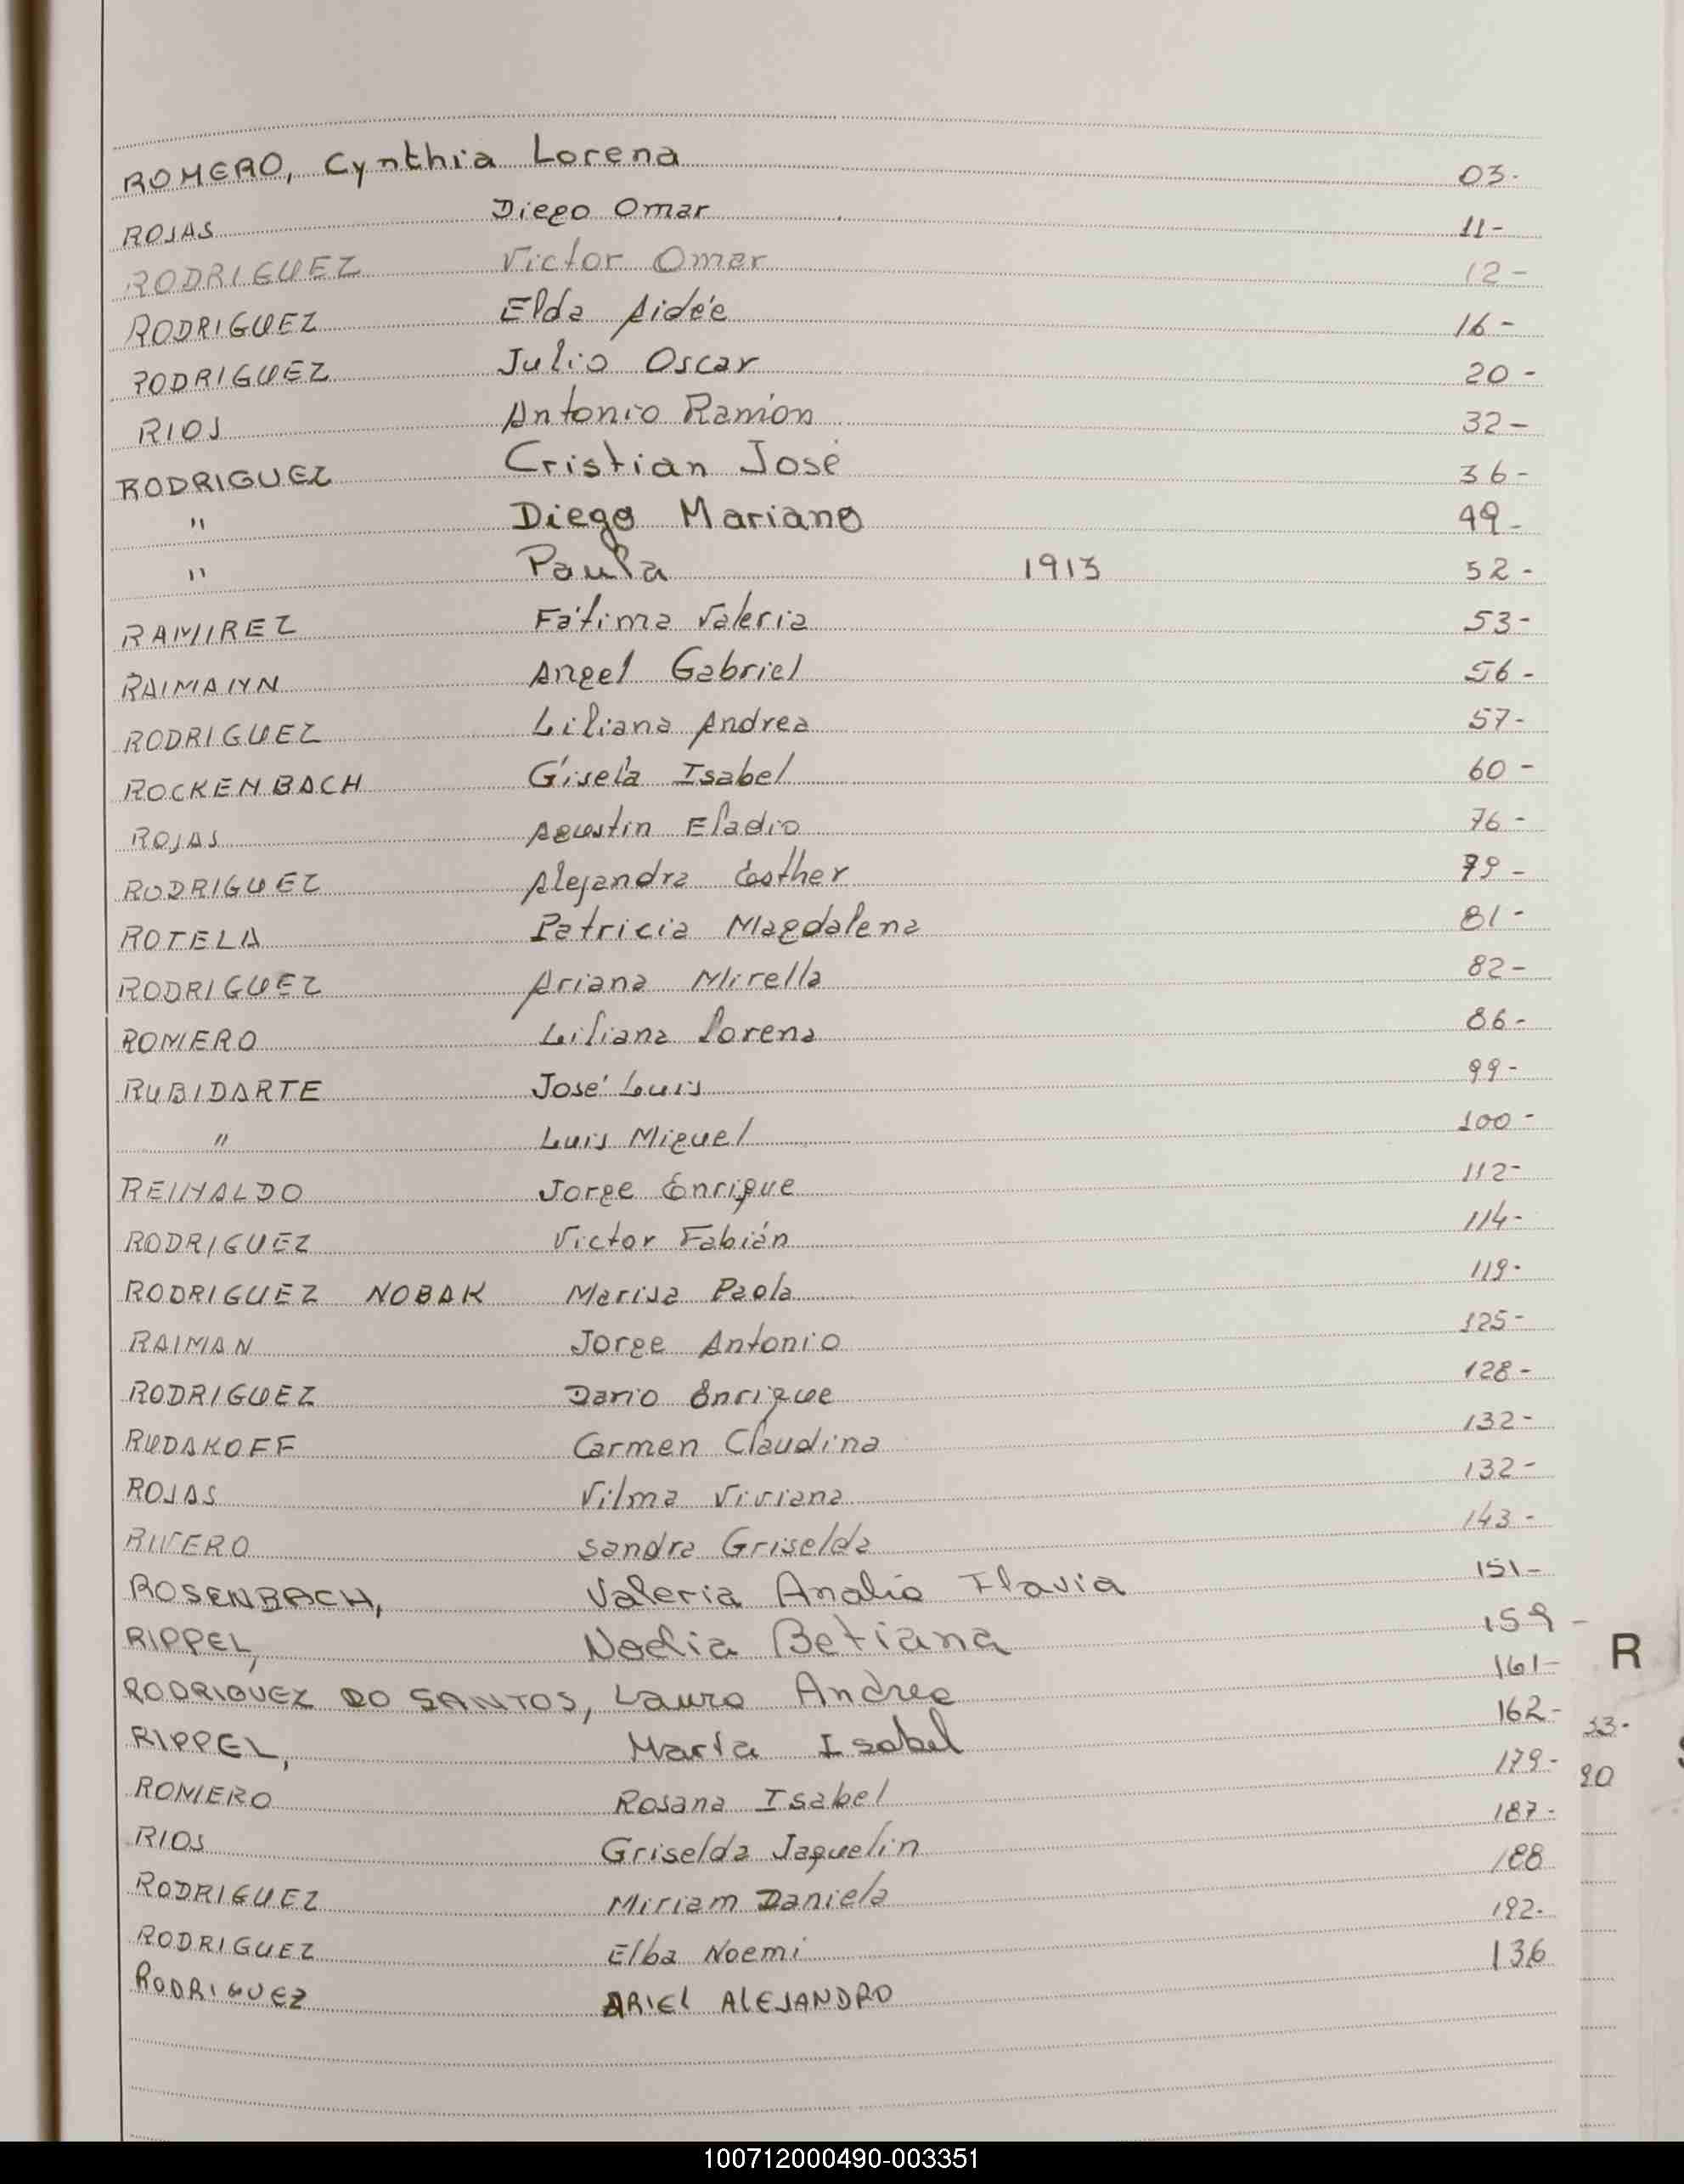 ROMERO, Cynthia Lorena 03-
ROJAS Diego Omar 11-
RODRIGUEZ Victor Omar 12-
RODRIGUEZ Elda Aidée 16-
RODRIGUEZ Julio Oscar 20-
RIOS Antonio Ramón 32-
RODRIGUEZ Cristian José 36-
" Diego Mariano 49-
" Paula 1913 52-
RAMIREZ Fátima Valeria 53-
RAIMANN Angel Gabriel 56-
RODRIGUEZ Liliana Andrea 57-
ROCKENBACH Gisela Isabel 60-
ROJAS Agustin Eladio 76-
RODRIGUEZ Alejandra Esther 79-
ROTELA Patricia Magdalena 81-
RODRIGUEZ Ariana Mirella 82-
ROMERO Liliana Lorena 86-
RUBIDARTE José Luis 99-
" Luis Miguel 100-
REINALDO Jorge Enrique 112-
RODRIGUEZ Victor Fabián 114-
RODRIGUEZ NOBAK Marisa Paola 119-
RAIMAN Jorge Antonio 125-
RODRIGUEZ Dario Enrique 128-
RUDAKOFF Carmen Claudina 132-
ROJAS Vilma Viviana 132-
RIVERO Sandra Griselda 143-
ROSENBACH, Valeria Analia Flavia 151-
RIPPEL, Noelia Betiana 159-
RODRIGUEZ DO SANTOS, Laura Andrea 161-
RIPPEL, María Isabel 162-
ROMERO Rosana Isabel 179-
RIOS Griselda Jaquelin 187-
RODRIGUEZ Miriam Daniela 188
RODRIGUEZ Elba Noemi 192-
RODRIGUEZ ARIEL ALEJANDRO 136
R
33-
90
100712000490-003351